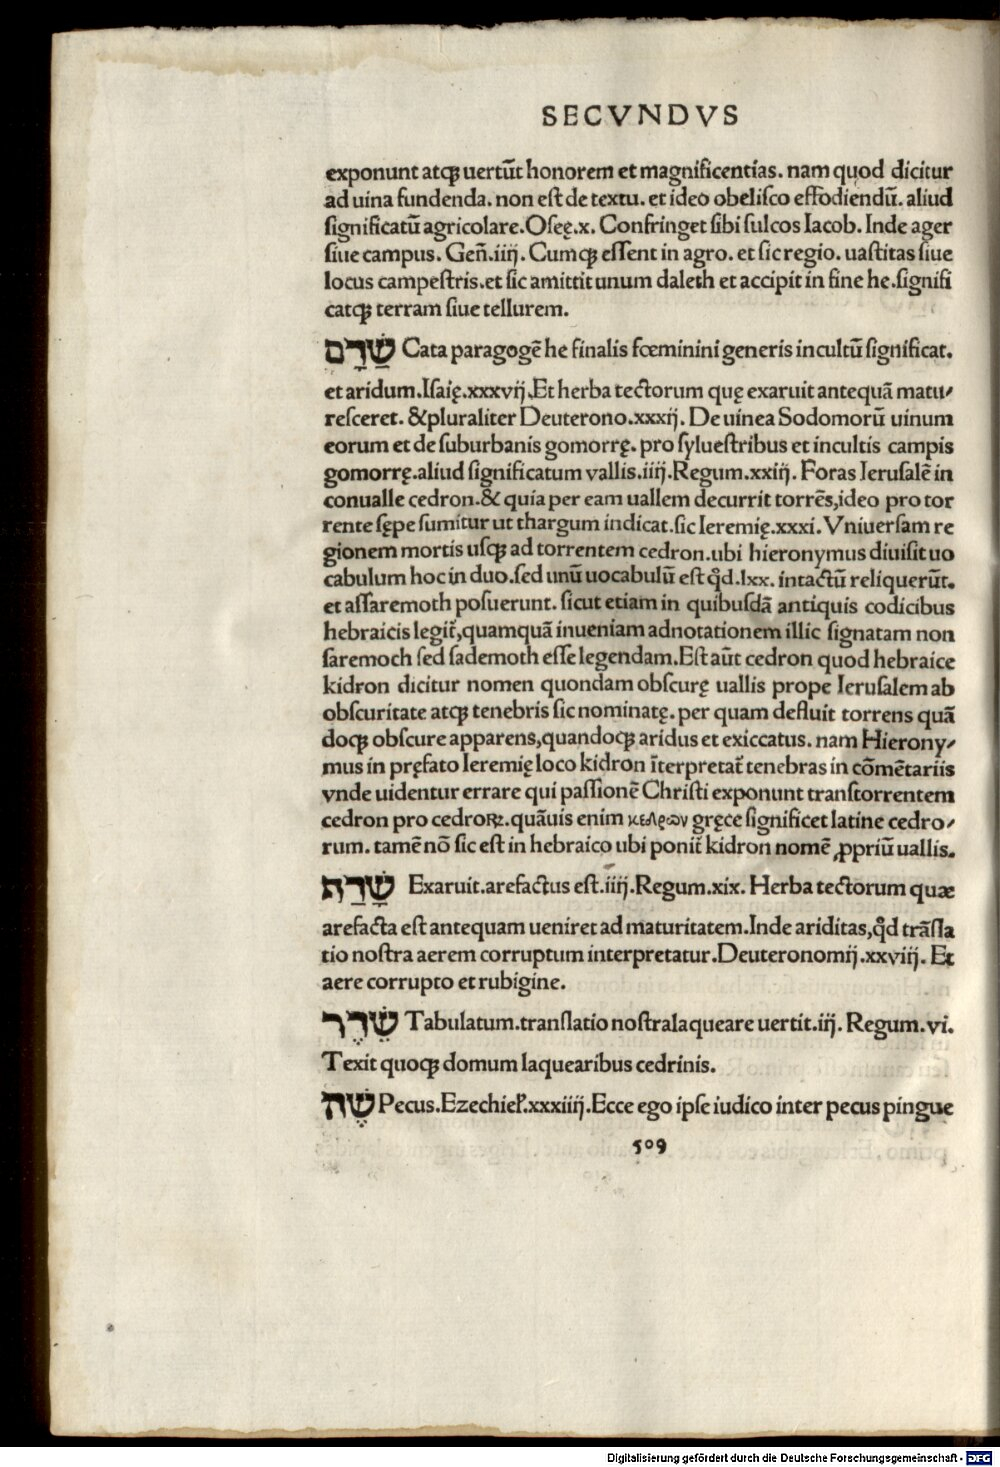 SECVNDVS
exponunt atqꝫ uertũt honorem et magnificentias. nam quod dicitur
ad uina fundenda. non est de textu. et ideo obelisco effodiendũ. aliud
significatũ agricolare. Oseę.x. Confringet sibi sulcos Iacob. Inde ager
siue campus. Gen̄.iiij. Cumqꝫ essent in agro. et sic regio. uastitas siue
locus campestris.et sic amittit unum daleth et accipit in fine he.signifi
catqꝫ terram siue tellurem.
שַׁדָם Cata paragogẽ he finalis fœminini generis incultũ significat.
et aridum.Isaię.xxxvij.Et herba tectorum quę exaruit antequã matu/
resceret. &pluraliter Deuterono.xxxij. De uinea Sodomorũ uinum
eorum et de suburbanis gomorrę. pro syluestribus et incultis campis
gomorrę.aliud significatum vallis.iiij.Regum.xxiij. Foras Ierusalẽ in
conualle cedron.& quia per eam uallem decurrit torrẽs,ideo pro tor
rente sępe sumitur ut thargum indicat.sic Ieremię.xxxi. Vniuersam re
gionem mortis usqꝫ ad torrentem cedron.ubi hieronymus diuisit uo
cabulum hoc in duo.sed unũ uocabulũ est qd̃.lxx. intactũ reliquerũt.
et assaremoth posuerunt. sicut etiam in quibusdã antiquis codicibus
hebraicis legit̃,quamquã inueniam adnotationem illic signatam non
saremoch sed sademoth esse legendam.Est aũt cedron quod hebraice
kidron dicitur nomen quondam obscurę uallis prope Ierusalem ab
obscuritate atqꝫ tenebris sic nominatę. per quam defluit torrens quã
doqꝫ obscure apparens,quandoqꝫ aridus et exiccatus. nam Hierony/
mus in pręfato Ieremię loco kidron ĩterpretat̃ tenebras in cõmẽtariis
vnde uidentur errare qui passionẽ Christi exponunt transtorrentem
cedron pro cedroꝝ.quãuis enim κεδρων gręce significet latine cedro/
rum. tamẽ nõ sic est in hebraico ubi ponit̃ kidron nomẽ ꝓpriũ uallis.
שָׁדַף Exaruit.arefactus est.iiij.Regum.xix. Herba tectorum quæ
arefacta est antequam ueniret ad maturitatem.Inde ariditas,qd̃ trãsla
tio nostra aerem corruptum interpretatur.Deuteronomij.xxviij. Et
aere corrupto et rubigine.
שֵׂדֶר Tabulatum.translatio nostralaqueare uertit.iij. Regum.vi.
Texit quoqꝫ domum laquearibus cedrinis.
שֶׂה Pecus.Ezechieł.xxxiiij.Ecce ego ipse iudico inter pecus pingue
509
Digitalisierung gefördert durch die Deutsche Forschungsgemeinschaft - DFG